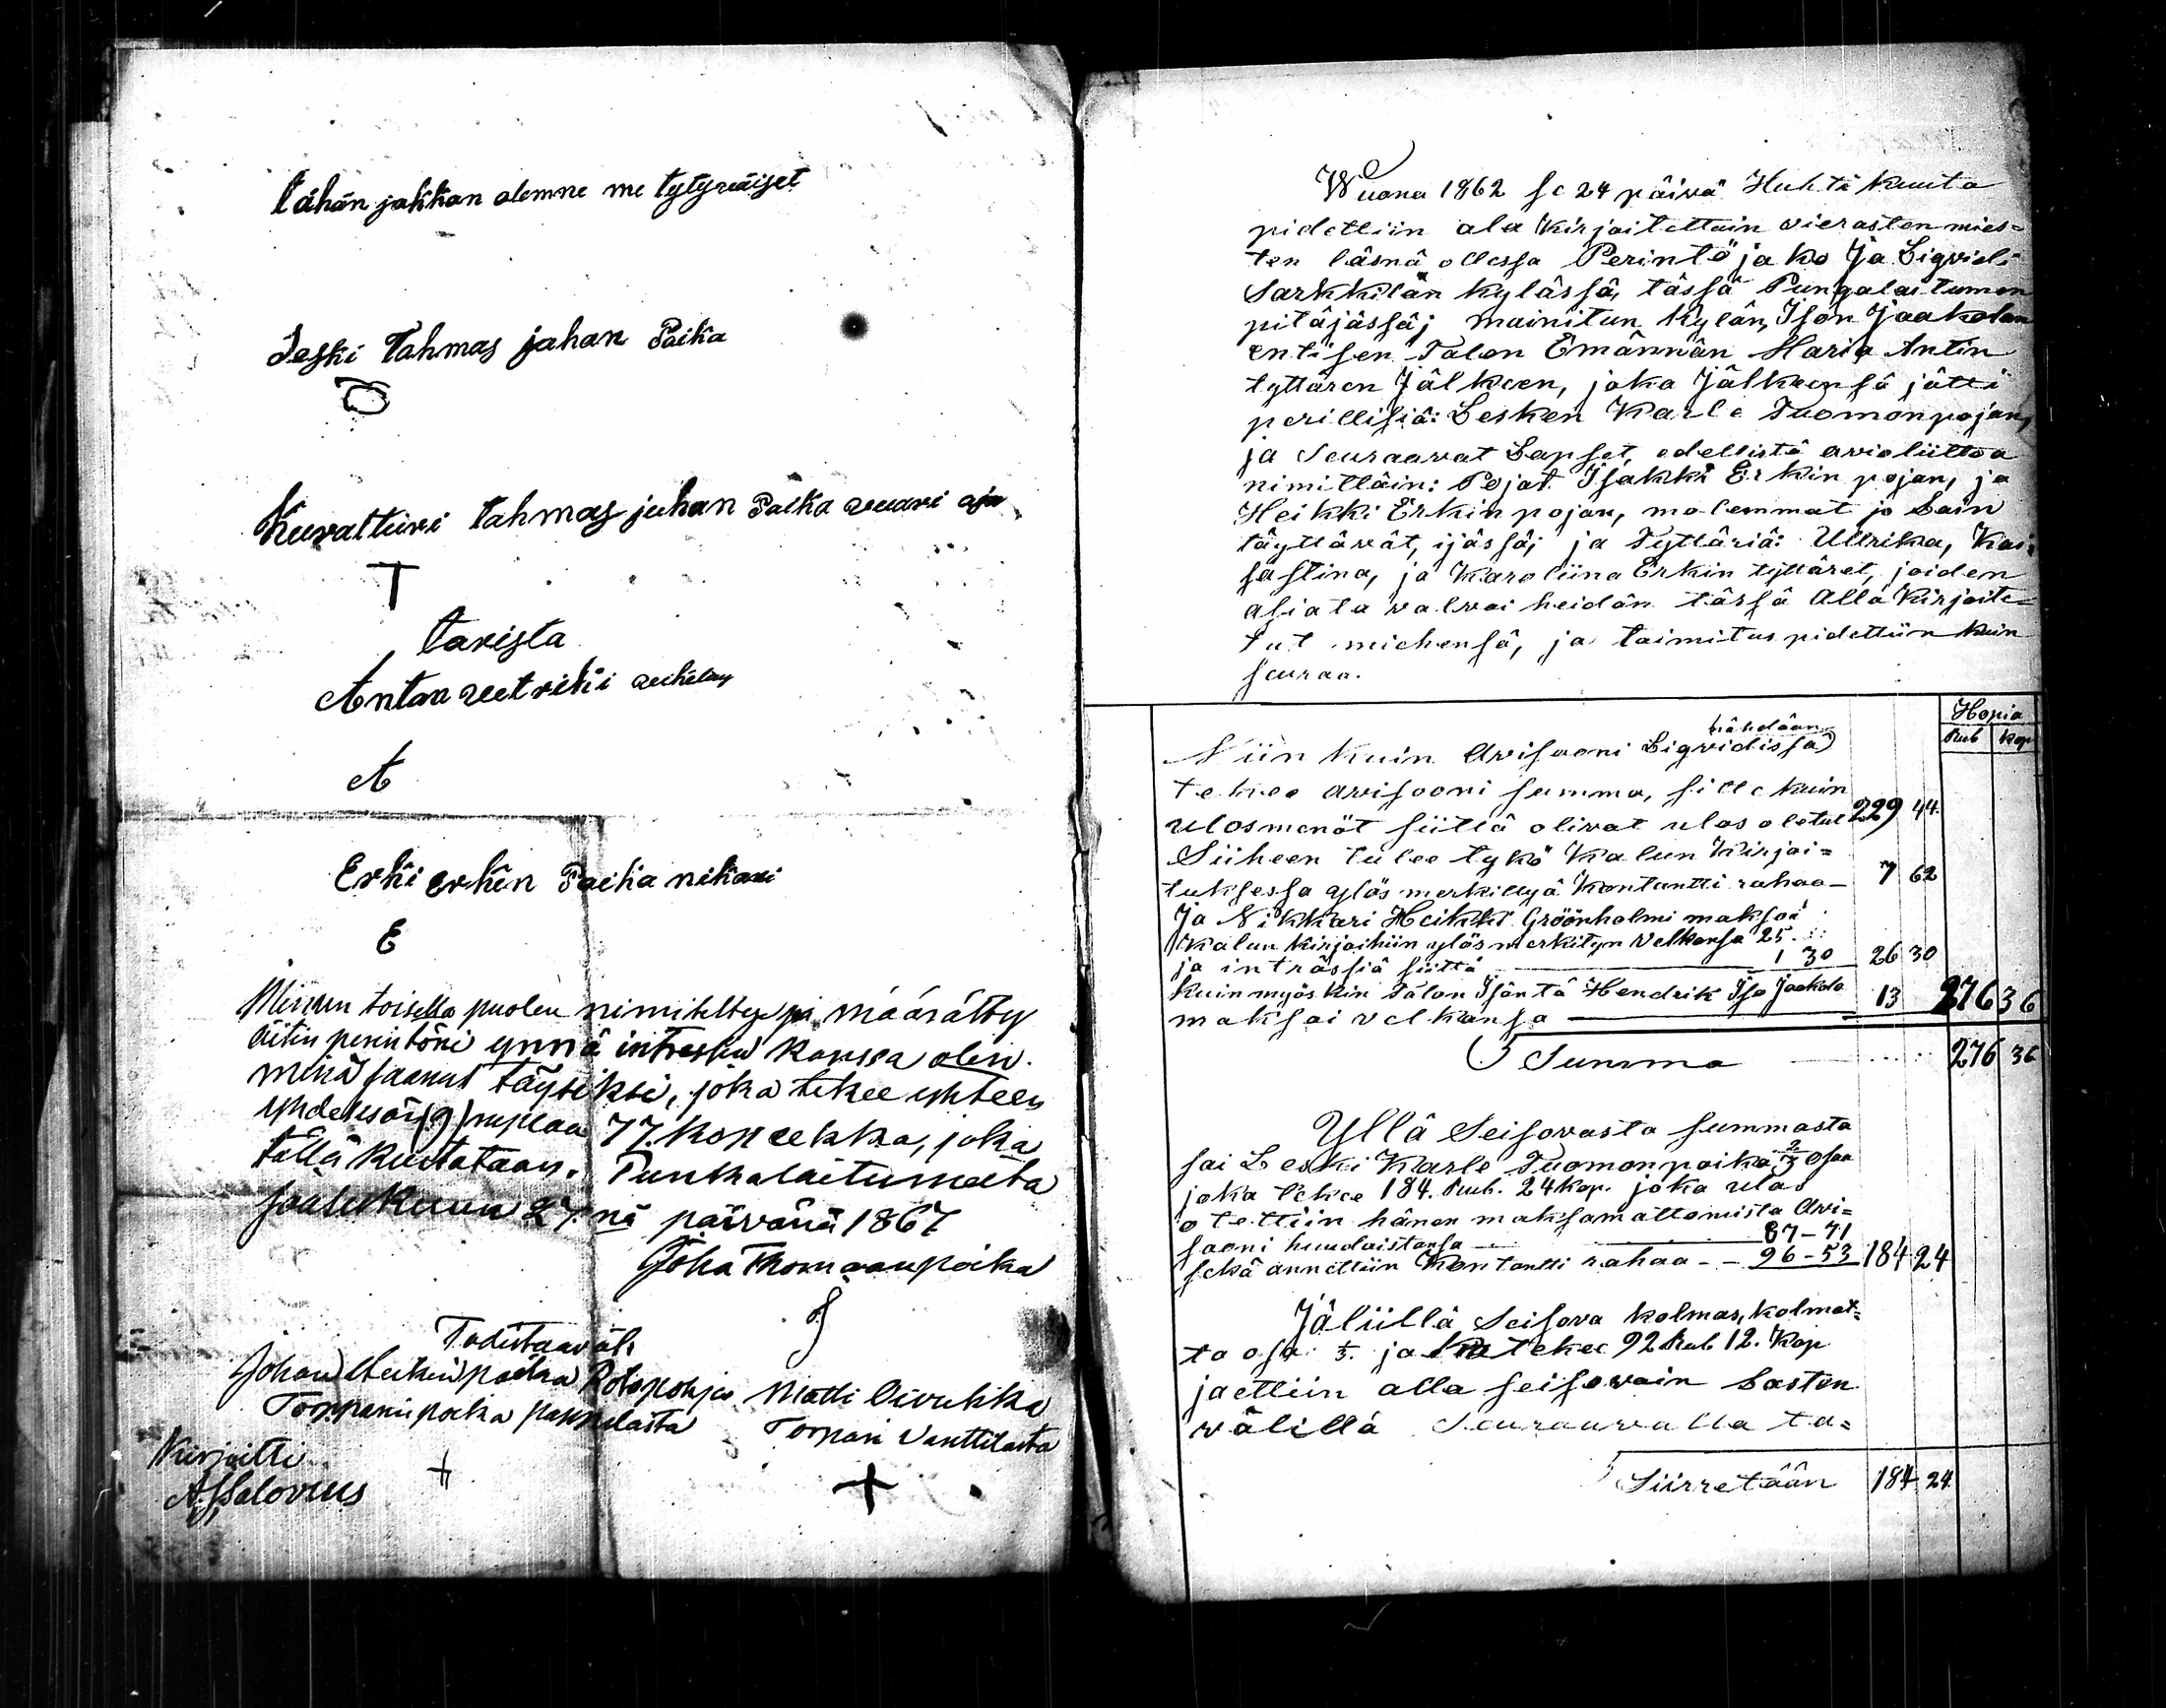 tähän jakhan olemne me tytywäiset
Leski Tahmas johan Poika
Kuvatturi tahmas juhan Poika
T
tavista
A
Erki erkin Poika nikari
E
Minun toisella puolen nimitettyä ja määrätty
äitin perintöni ynnä intressin kanssa olen
minä saanut täysiksi, joka tekee yhteen
yhdeksän (9) ruplaa 77 kopeekkaa, joka
tällä kuitataan. Punkalaitumelta
Joulukuun 27.nä päivänä 1867
Joha Thomaanpoika
Todistaavat
Johan Heikinpoika Matti Oivukka
Torpparinpoika pappilasta Torpari Vanttilasta
Kirjoitti
+ +
Wuona 1862 se 24 päivä Huhti kuuta
pidettiin ala Kirjoitettuin vierasten mies=
ten läsnä ollessa Perintö jako Ja Ligvidi
Sarkkilan kylässä, tässä Pungalaitumen
pitäjässä; mainitun kylän, Ison Jaakolan
entisen Talon Emännän Maria Antin
tyttären Jälkeen, joka Jälkeensä jätti
perillisiä: Lesken Karle Tuomonpojan,
ja Seuraavat Lapset, edellistä avioliittoa
nimittäin: Pojat Isakki Erkin pojan, ja
Heikki Erkin pojan, molemmat jo Lain
täyttävät, ijässä; ja Tyttäriä: Ulrika, Kai=
sa stina, ja Karoliina Erkin tyttäret, joiden
asiata valvoi heidän tässä Alla Kirjoite=
tut miehensä, ja toimitus pidettiin kuin
seuraa.
Hopia
Rub Kop
nähdään
Niin kuin Avisooni Ligvidissa
tekee avisooni summa, sille kuin
ulosmenöt siittä olivat ulos otetut 299 44
Siiheen tulee tykö Kalun Kirjoi=
tuksessa ylös merkittyä Kontantti rahaa 7 62
Ja Nikkari Heikki Gröönholmi maksoi
Kalun kirjoihiin ylös merkityn Velkansa 25
ja inträssiä siittä 1 30 26 30
Kuin myös kin Talon Isäntä Hendrik Iso Jaakola
maksoi velkansa 13 276 36
Summa 276 36
Yllä Seisovasta summasta
sai Leski Karle Tuomonpoika 2/3 osaa
joka tekee 184. Rub. 24 Kop. joka ulos
otettiin hänen maksamattomista Avi=
sooni huudoistansa 87-71
sekä annettiin Kontantti rahaa 96-53 184 24
Jäliillä Seisova kolmas, kolmat=
ta osa 1/3. ja tekee 92 Rub 12. Kop
jaettiin alla seisovain Lasten
välillä Seuraavalla ta=
Siirretään 184 24